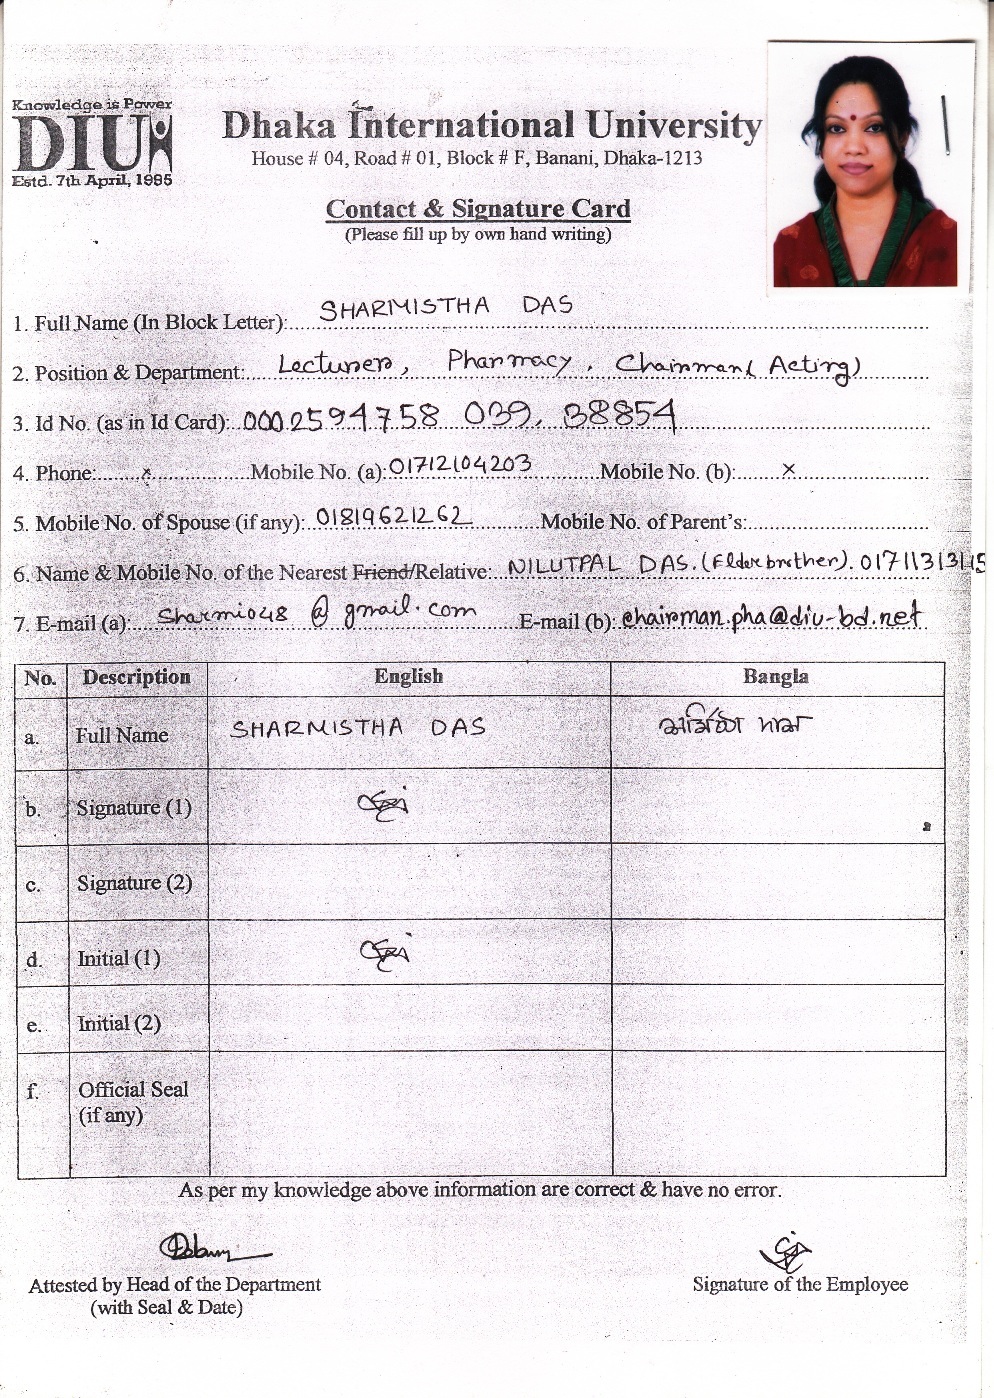 Knowledge is Power
DIU
Estd. 7th April, 1995
Dhaka International University
House # 04, Road # 01, Block # F, Banani, Dhaka-1213
Contact & Signature Card
(Please fill up by own hand writing)
1. Full Name (In Block Letter): SHARMISTHA DAS
2. Position & Department: Lecturer, Pharmacy, Chairman (Acting)
3. Id No. (as in Id Card): 0002594758 039, 38854
4. Phone: x Mobile No. (a): 01712104203 Mobile No. (b): x
5. Mobile No. of Spouse (if any): 01819621262 Mobile No. of Parent's:
6. Name & Mobile No. of the Nearest Friend/Relative: NILUTPAL DAS. (Elder brother).
7. E-mail (a): sharmi048@gmail.com E-mail (b): chairman.pha@diu-bd.net
No. Description English Bangla
a. Full Name SHARMISTHA DAS শর্মিষ্ঠা দাস
b. Signature (1)
c. Signature (2)
d. Initial (1)
e. Initial (2)
f. Official Seal
(if any)
As per my knowledge above information are correct & have no error.
Attested by Head of the Department Signature of the Employee
(with Seal & Date)